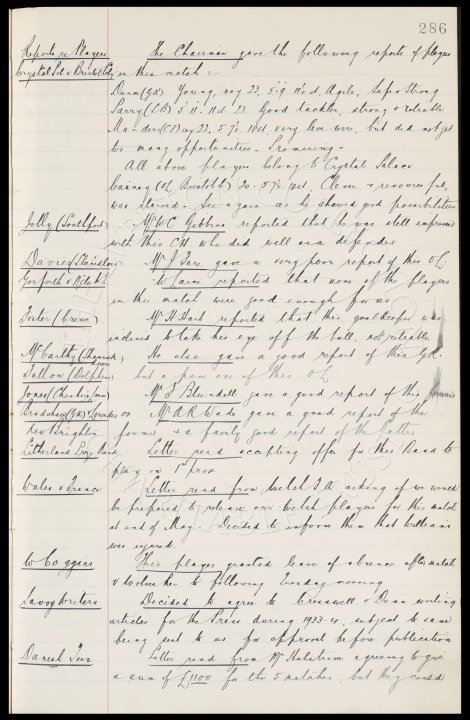 286
Reports re Players The Chairman gave the following reports of players
Crystal Pal v Bristol City in this match :-
Dunn (GK) Young, say 23, 5'9 11st, Agile, Safe & Strong
Parry (LB) 5'11. 11st 23. Good tackler, strong & reliable
Mander (CF) say 22, 5.7½ 10st, very live wire, but did not get
too many opportunities - Promising -
All above players belong to Crystal Palace
(OL Bristol C) 20. 5.7½. 10st. Clever & resourceful,
was starved. See again as he showed good possibilities
Jolly (Southport) Mr W C Gibbins reported that he was still impressed
with this CH who did well as a defender
Davies Mr J gave a very poor report of this OL
Gosforth v reported that none of the players
in this match were good enough for us
Foster (Crewe) Mr H Hart reported that this goalkeeper was
inclined to take his eye off the ball, not reliable
McCarthy (Shamrock He also gave a good report of this GK.
Fallon (Dolphins) but a poor one of this OL
Jones (Cheshire Mr J Blundell gave a good report of this forward
Bradshaw (GK) & Mr A R Wade gave a good report of the
New Brighton former & a fairly good report of the latter
Litherland Prize Band Letter read accepting offer for this Band to
play on 1st prox
Wales v France Letter read from Welsh F.A asking if we would
be prepared to release our Welsh players for this match
at end of May - Decided to inform them that Williams
was injured.
W Coggins This player granted leave of absence after match
v to following Tuesday morning
Savoy Writers Decided to agree to Cresswell & Dean writing
articles for the Press during 1933-4, subject to same
being sent to us for approval before publication
Danish Tour Letter read from Mr agreeing to give
a sum of £1100 for the 5 matches, but they could